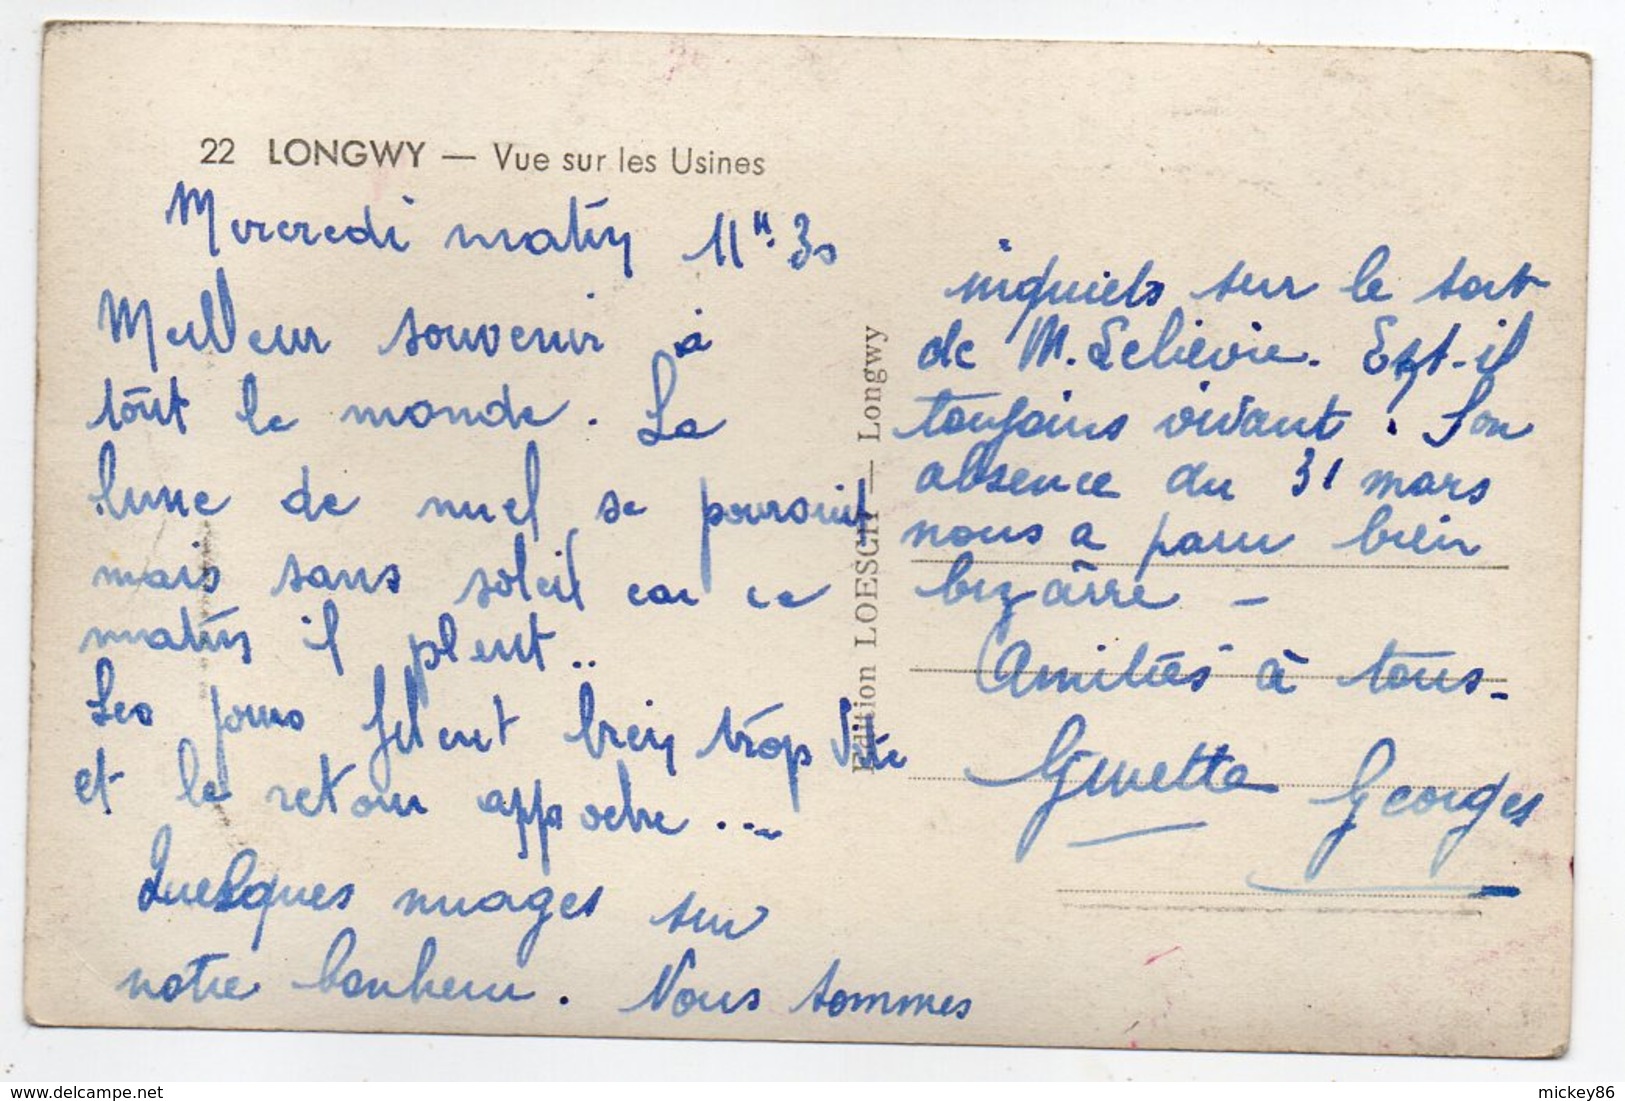 22 LONGWY — Vue sur les Usines
Mercredi matin 11H.30
Meilleur souvenir à
tout le monde. La
lune de miel se poursuit
mais sans soleil car ce
matin il pleut..
Les jours filent bien trop vite
et le retour approche ...
Quelques nuages sur
notre bonheur. Nous sommes
inquiets sur le sort
de M. Lelièvre. Est-il
toujours vivant ? Son
absence du 31 mars
nous a paru bien
bizarre -
Amitiés à tous-
Ginette Georges
Edition LOESCH — Longwy
mickey86